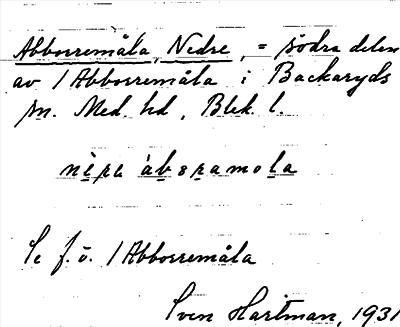 Abborremåla, Nedre, = södra delen
av 1 Abborremåla i Backaryds
sn. Med. hd, Blek. l.
Se f. ö. 1 Abborremåla
Sven Hartman, 1931